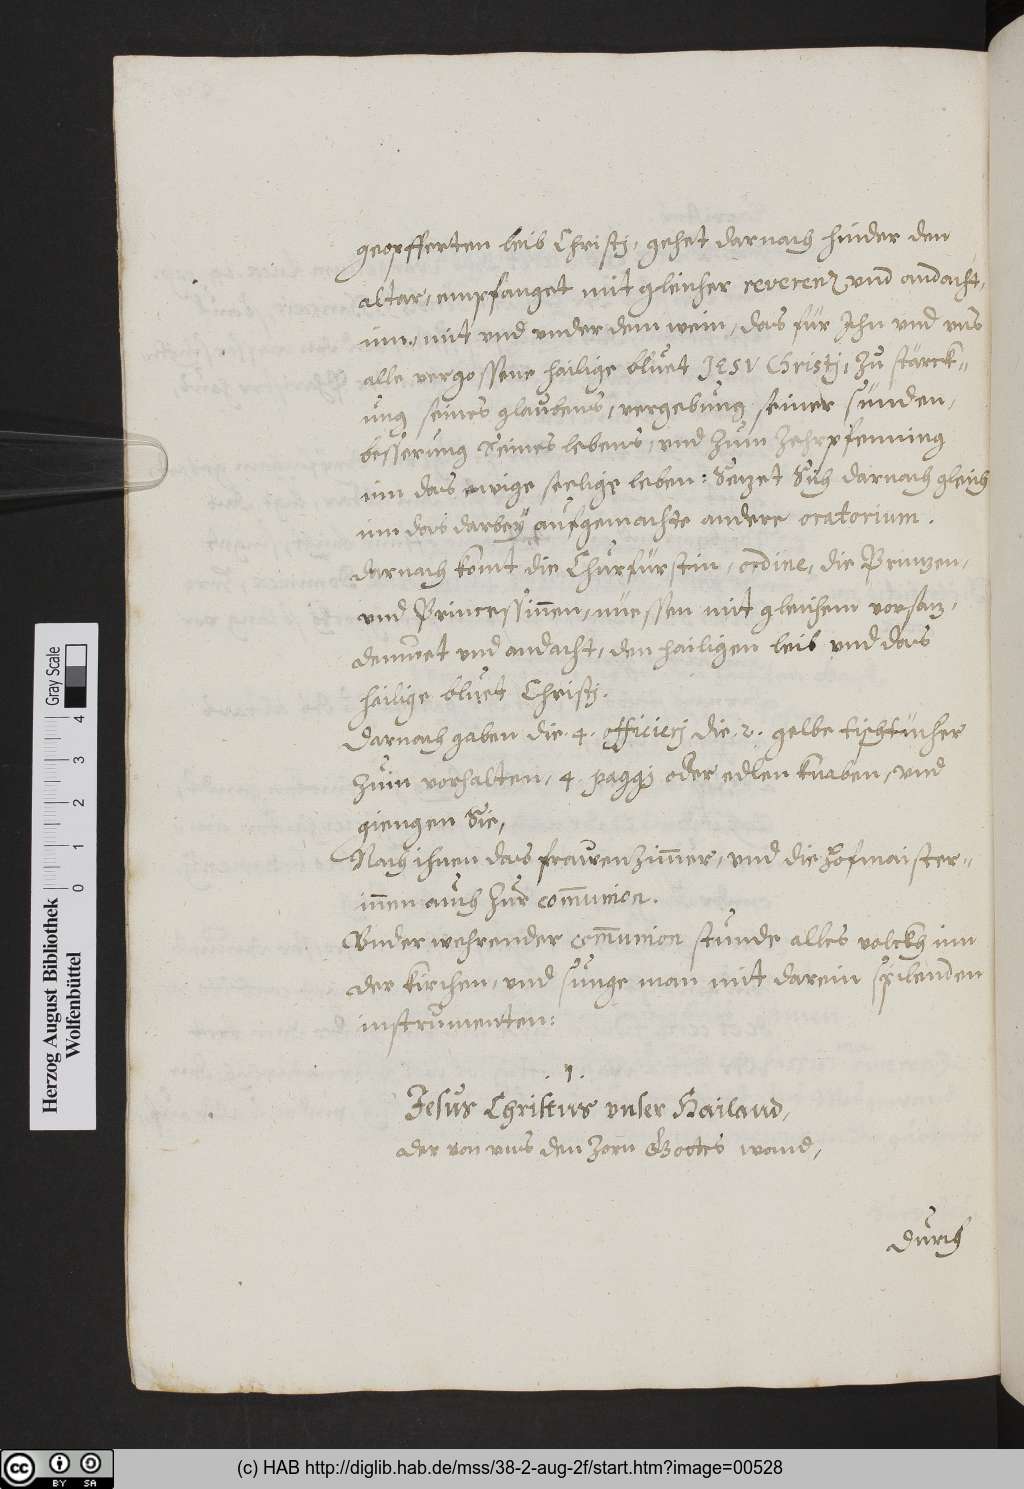 geopfferten leib Christj, gehet darnach hinder den
altar, empfanget mit gleicher reverenz und andacht,
inn, mit und under dem wein, das für Jhn und uns
alle vergossene hailige bluet JESV Christj, zu stärck-
ung seines glaubens, vergebung seiner sünden,
besserung seines lebens, und zum zehrpfenning
inn das ewige seelige leben: Sezet Sich darnach gleich
inn das darbey aufgemachte andere oratorium.
Darnach komt die Churfürstin, ordine, die Prinzen,
und Princessinen, niessen mit gleichem vorsaz,
demuet und andacht, den hailigen leib und das
hailige bluet Christj.
Darnach gaben die .4. officierj die .2. gelbe tischtücher
zum vorhalten, 4. paggj oder edlen knaben, und
giengen Sie,
Nach ihnen das frawenzimmer, und die Hofmaister-
innen auch zur communion.
Under wehrender communion stunde alles volckh inn
der kirchen, und sunge man mit darein spilenden
instrumenten:
.1.
Jesus Christus unser Hailand,
der von uns den zorn Gottes wand,
Durch
Herzog August Bibliothek
Wolfenbüttel
0 1 2 3 4
Gray Scale
(c) HAB http://diglib.hab.de/mss/38-2-aug-2f/start.htm?image=00528
cc BY SA